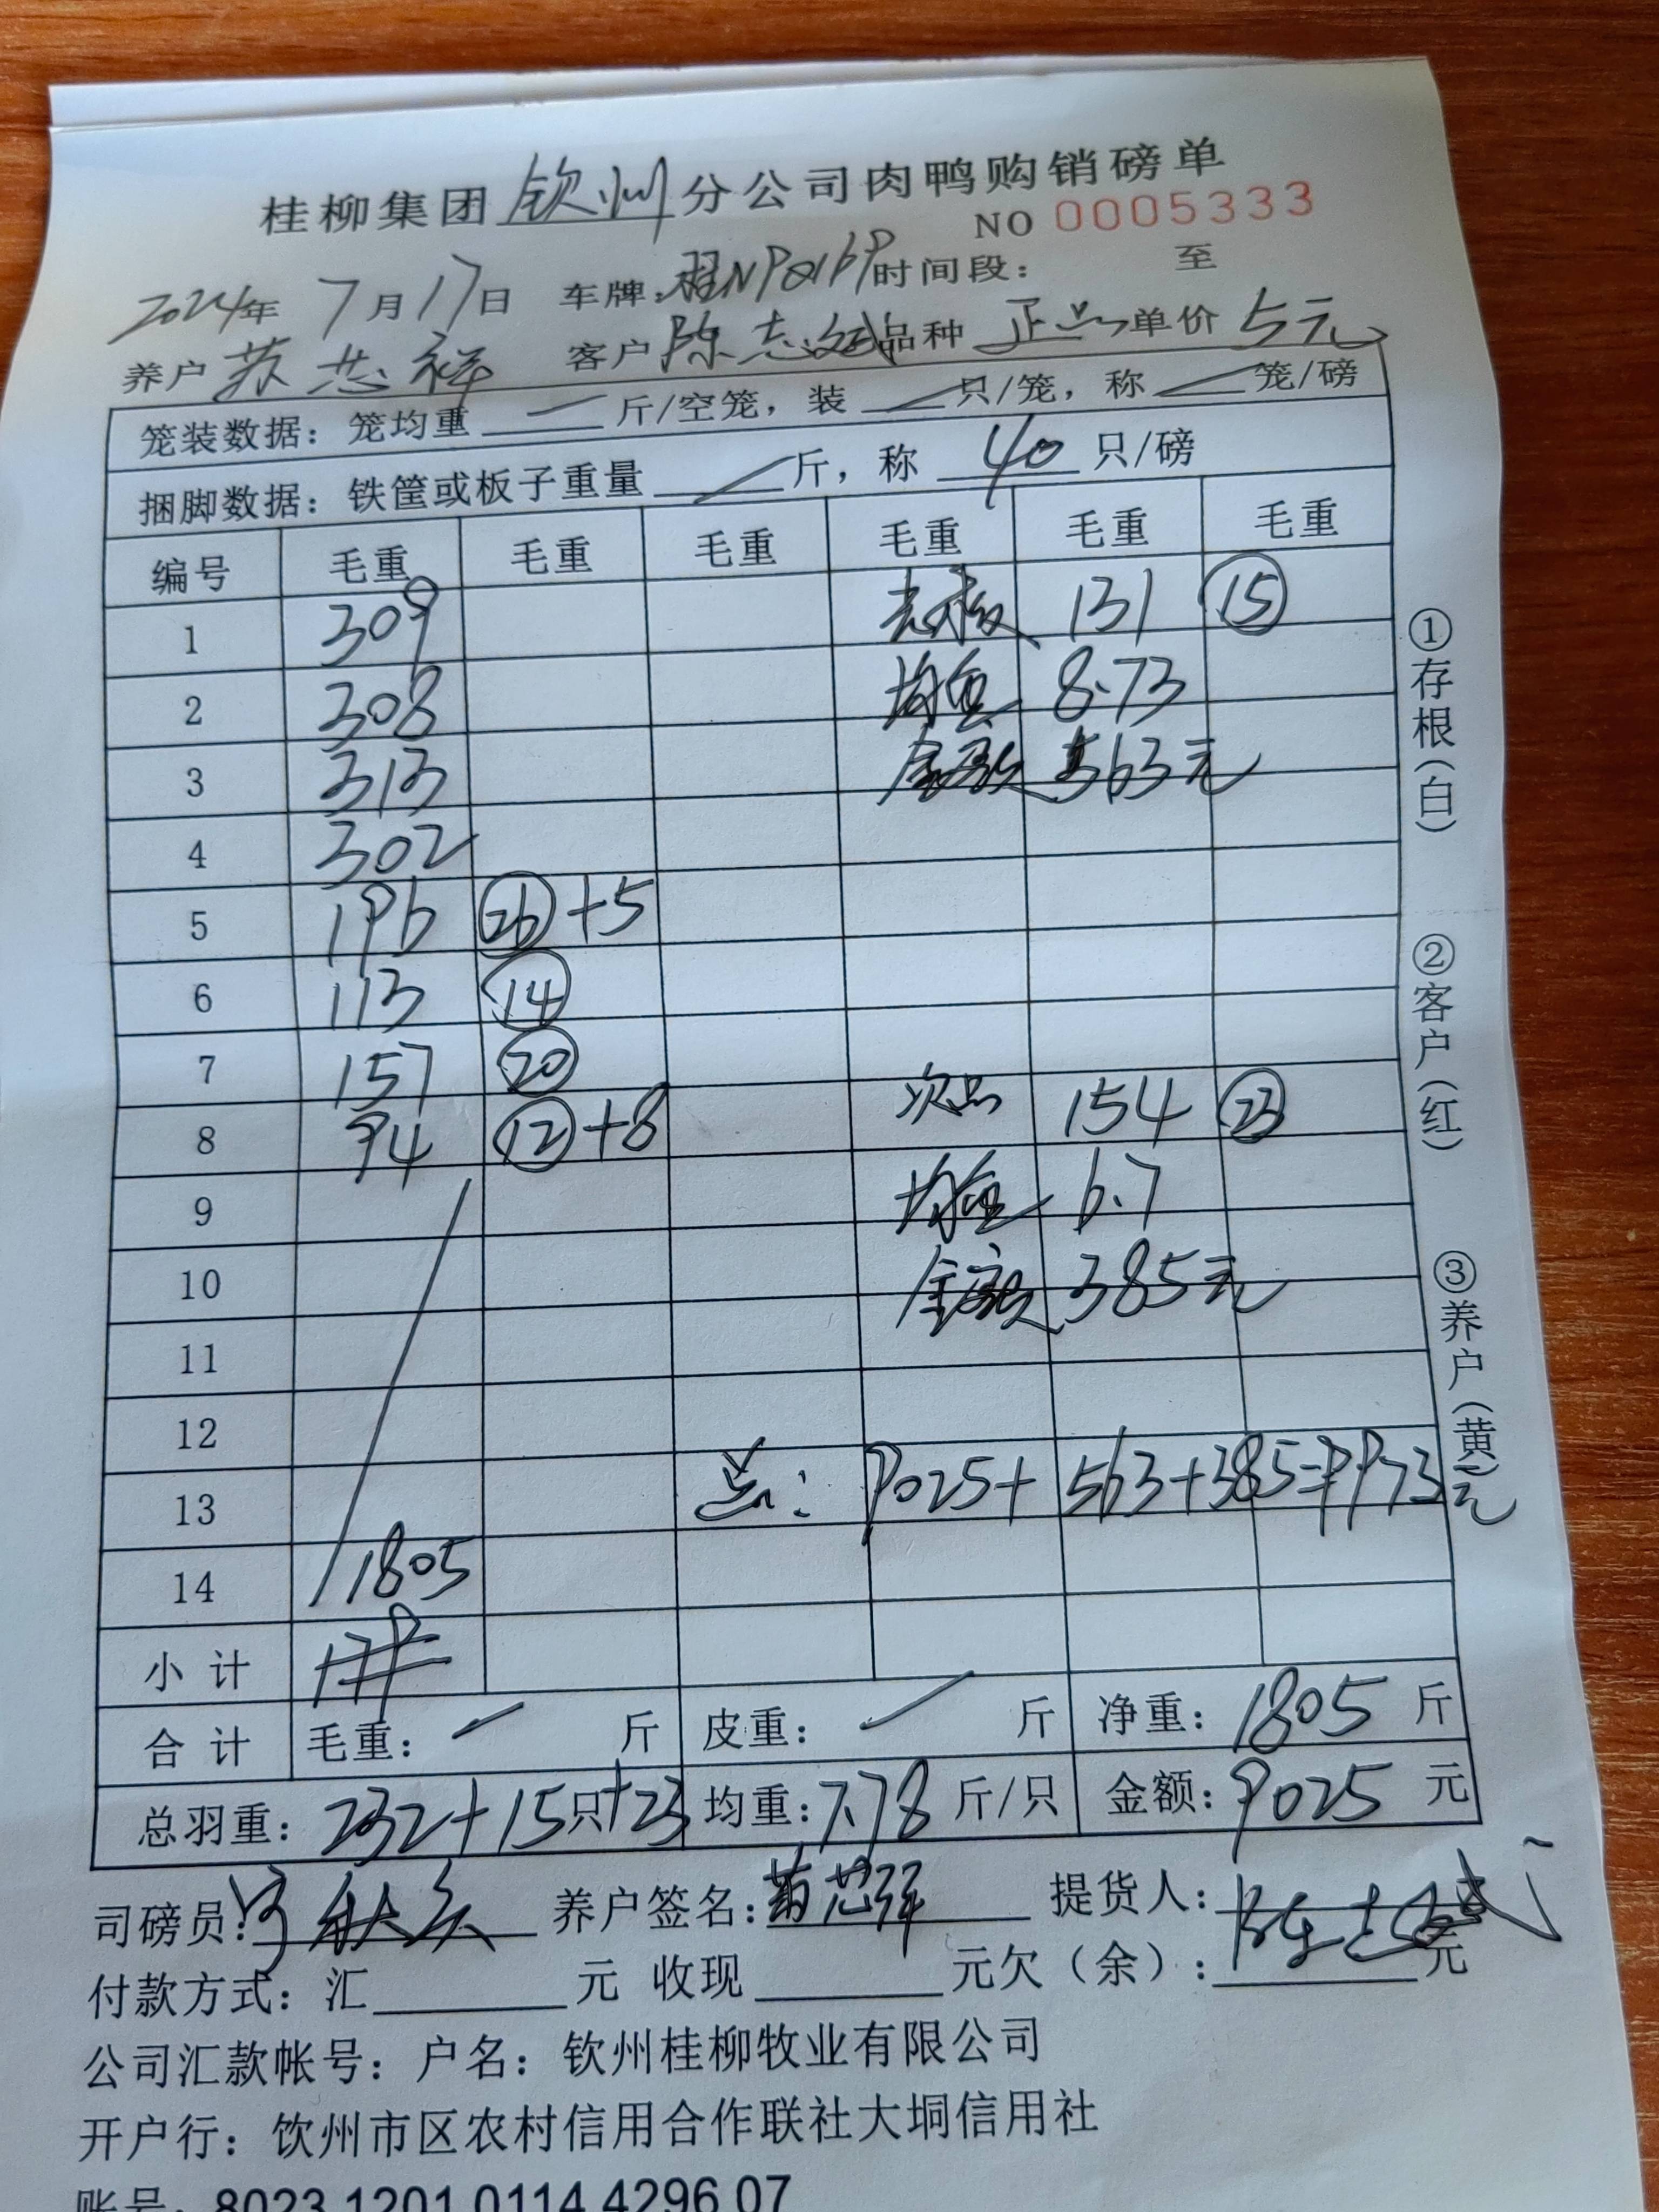 桂柳集团 钦州 分公司肉鸭购销磅单
NO 0005333
2024年 7月17日 车牌: 时间段: 至
养户 苏芯祥 客户 陈志斌 品种 正品 单价 5元
笼装数据: 笼均重 / 斤/空笼, 装 / 只/笼, 称 / 笼/磅
捆脚数据: 铁筐或板子重量 / 斤, 称 40 只/磅
编号 毛重 毛重 毛重 毛重 毛重 毛重
1 309 131 ⑮
2 308 均重 8.73
3 313 金额 563元
4 302
5 196 ㉖+5
6 113 ⑭
7 157 ⑳
8 94 ⑫+8 次品 154 ㉓
9 均重 6.7
10 金额 385元
11
12
13 总: 9025+563+385=9973元
14 1805
小计
合计 毛重: / 斤 皮重: / 斤 净重: 1805 斤
总羽重: 232+15只+23 均重: 7.78 斤/只 金额: 9025 元
司磅员: 养户签名: 苏芯祥 提货人: 陈志斌
付款方式: 汇 元 收现 元欠(余): 元
公司汇款帐号: 户名: 钦州桂柳牧业有限公司
开户行: 钦州市区农村信用合作联社大垌信用社
账号: 8023 1201 0114 4296 07
①存根(白)
②客户(红)
③养户(黄)